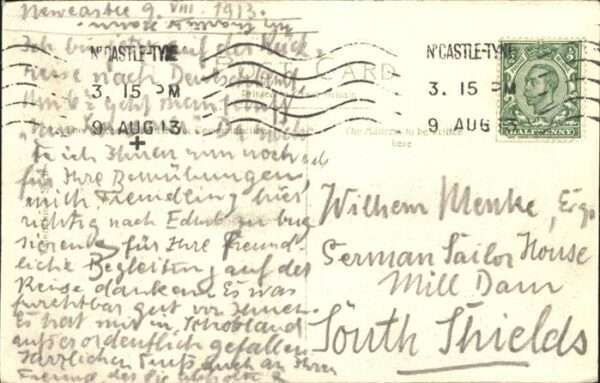 Newcastle 9. VIII. 1913.
Ich bin jetzt auf der Rück-
reise nach Deutschland
geht mein
Da möch
te ich Ihnen nun noch
für Ihre Bemühungen,
mich Fremdling hier
richtig nach Edinb. zu bug
sieren, für Ihre Freund-
liche Begleitung auf der
Reise danken. Es war
furchtbar gut von Ihnen.
Es hat mir in Schottland
außerordentlich gefallen.
Herzlichen Gruß auch an Ihren
Freund, der Sie abholte
POST CARD
The Address to be written
here
NCASTLE-TYNE
3. 15 PM
9 AUG 13
NCASTLE-TYNE
3. 15 PM
9 AUG 13
HALFPENNY
Wilhelm Menke, Esq.
German Sailor House
Mill Dam
South Shields